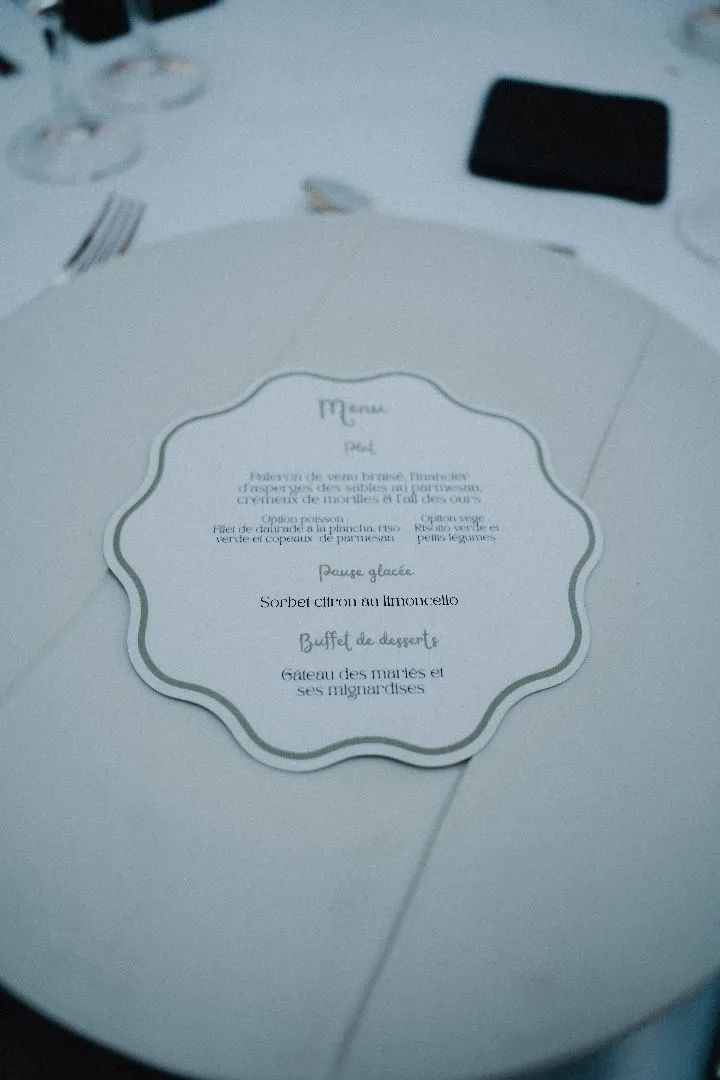 Menu
Plat
Paleron de veau braisé, financier
d'asperges des sables au parmesan,
crémeux de morilles & l'ail des ours
Option poisson
Filet de daurade à la plancha, riso
verde et copeaux de parmesan
Option végé
Risotto verde et
petits légumes
Pause glacée
Sorbet citron au limoncello
Buffet de desserts
Gâteau des mariés et
ses mignardises